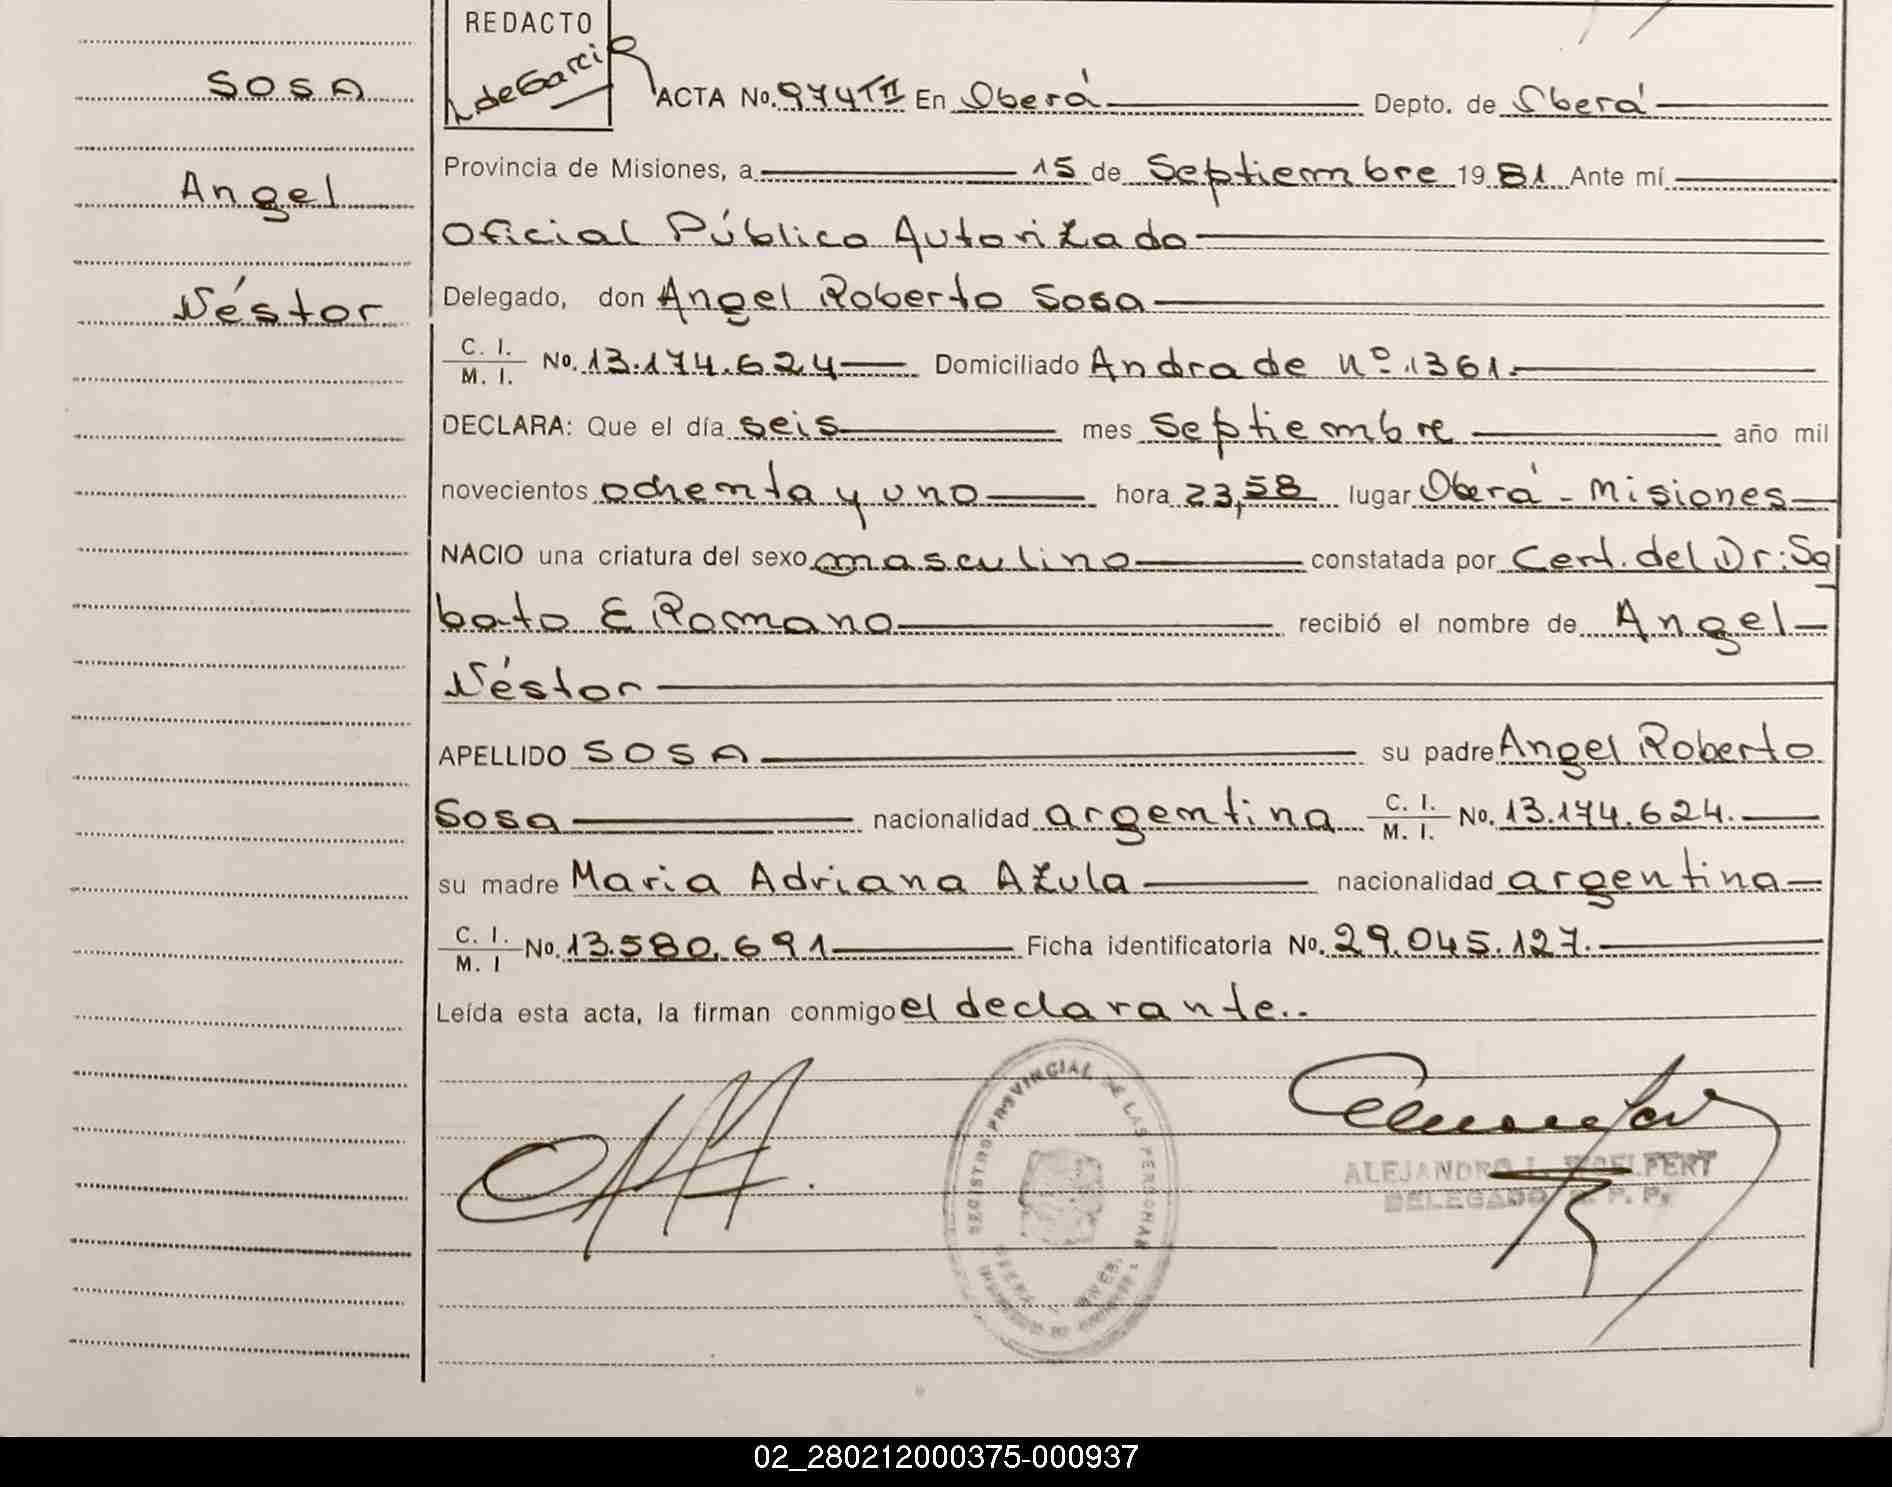 REDACTO
L. de Garcia
SOSA
Angel
Néstor
ACTA No. 974 TII En Oberá Depto. de Oberá
Provincia de Misiones, a 15 de Septiembre 1981 Ante mí
Oficial Público Autorizado
Delegado, don Angel Roberto Sosa
C. I. / M. I. No. 13.174.624 Domiciliado Andrade Nº 1361.
DECLARA: Que el día seis mes Septiembre año mil
novecientos ochenta y uno hora 23,58 lugar Oberá - Misiones
NACIO una criatura del sexo masculino constatada por Cert. del Dr: Sa
bato E Romano recibió el nombre de Angel
Néstor
APELLIDO SOSA su padre Angel Roberto
Sosa nacionalidad argentina C. I. / M. I. No. 13.174.624.
su madre Maria Adriana Azula nacionalidad argentina
C. I. / M. I No. 13.580.691 Ficha identificatoria No. 29.045.127.
Leída esta acta, la firman conmigo el declarante..
REGISTRO PROVINCIAL DE LAS PERSONAS
OBERA MNES.
ALEJANDRO L. WOELFERT
DELEGADO R. P. P.
02_280212000375-000937